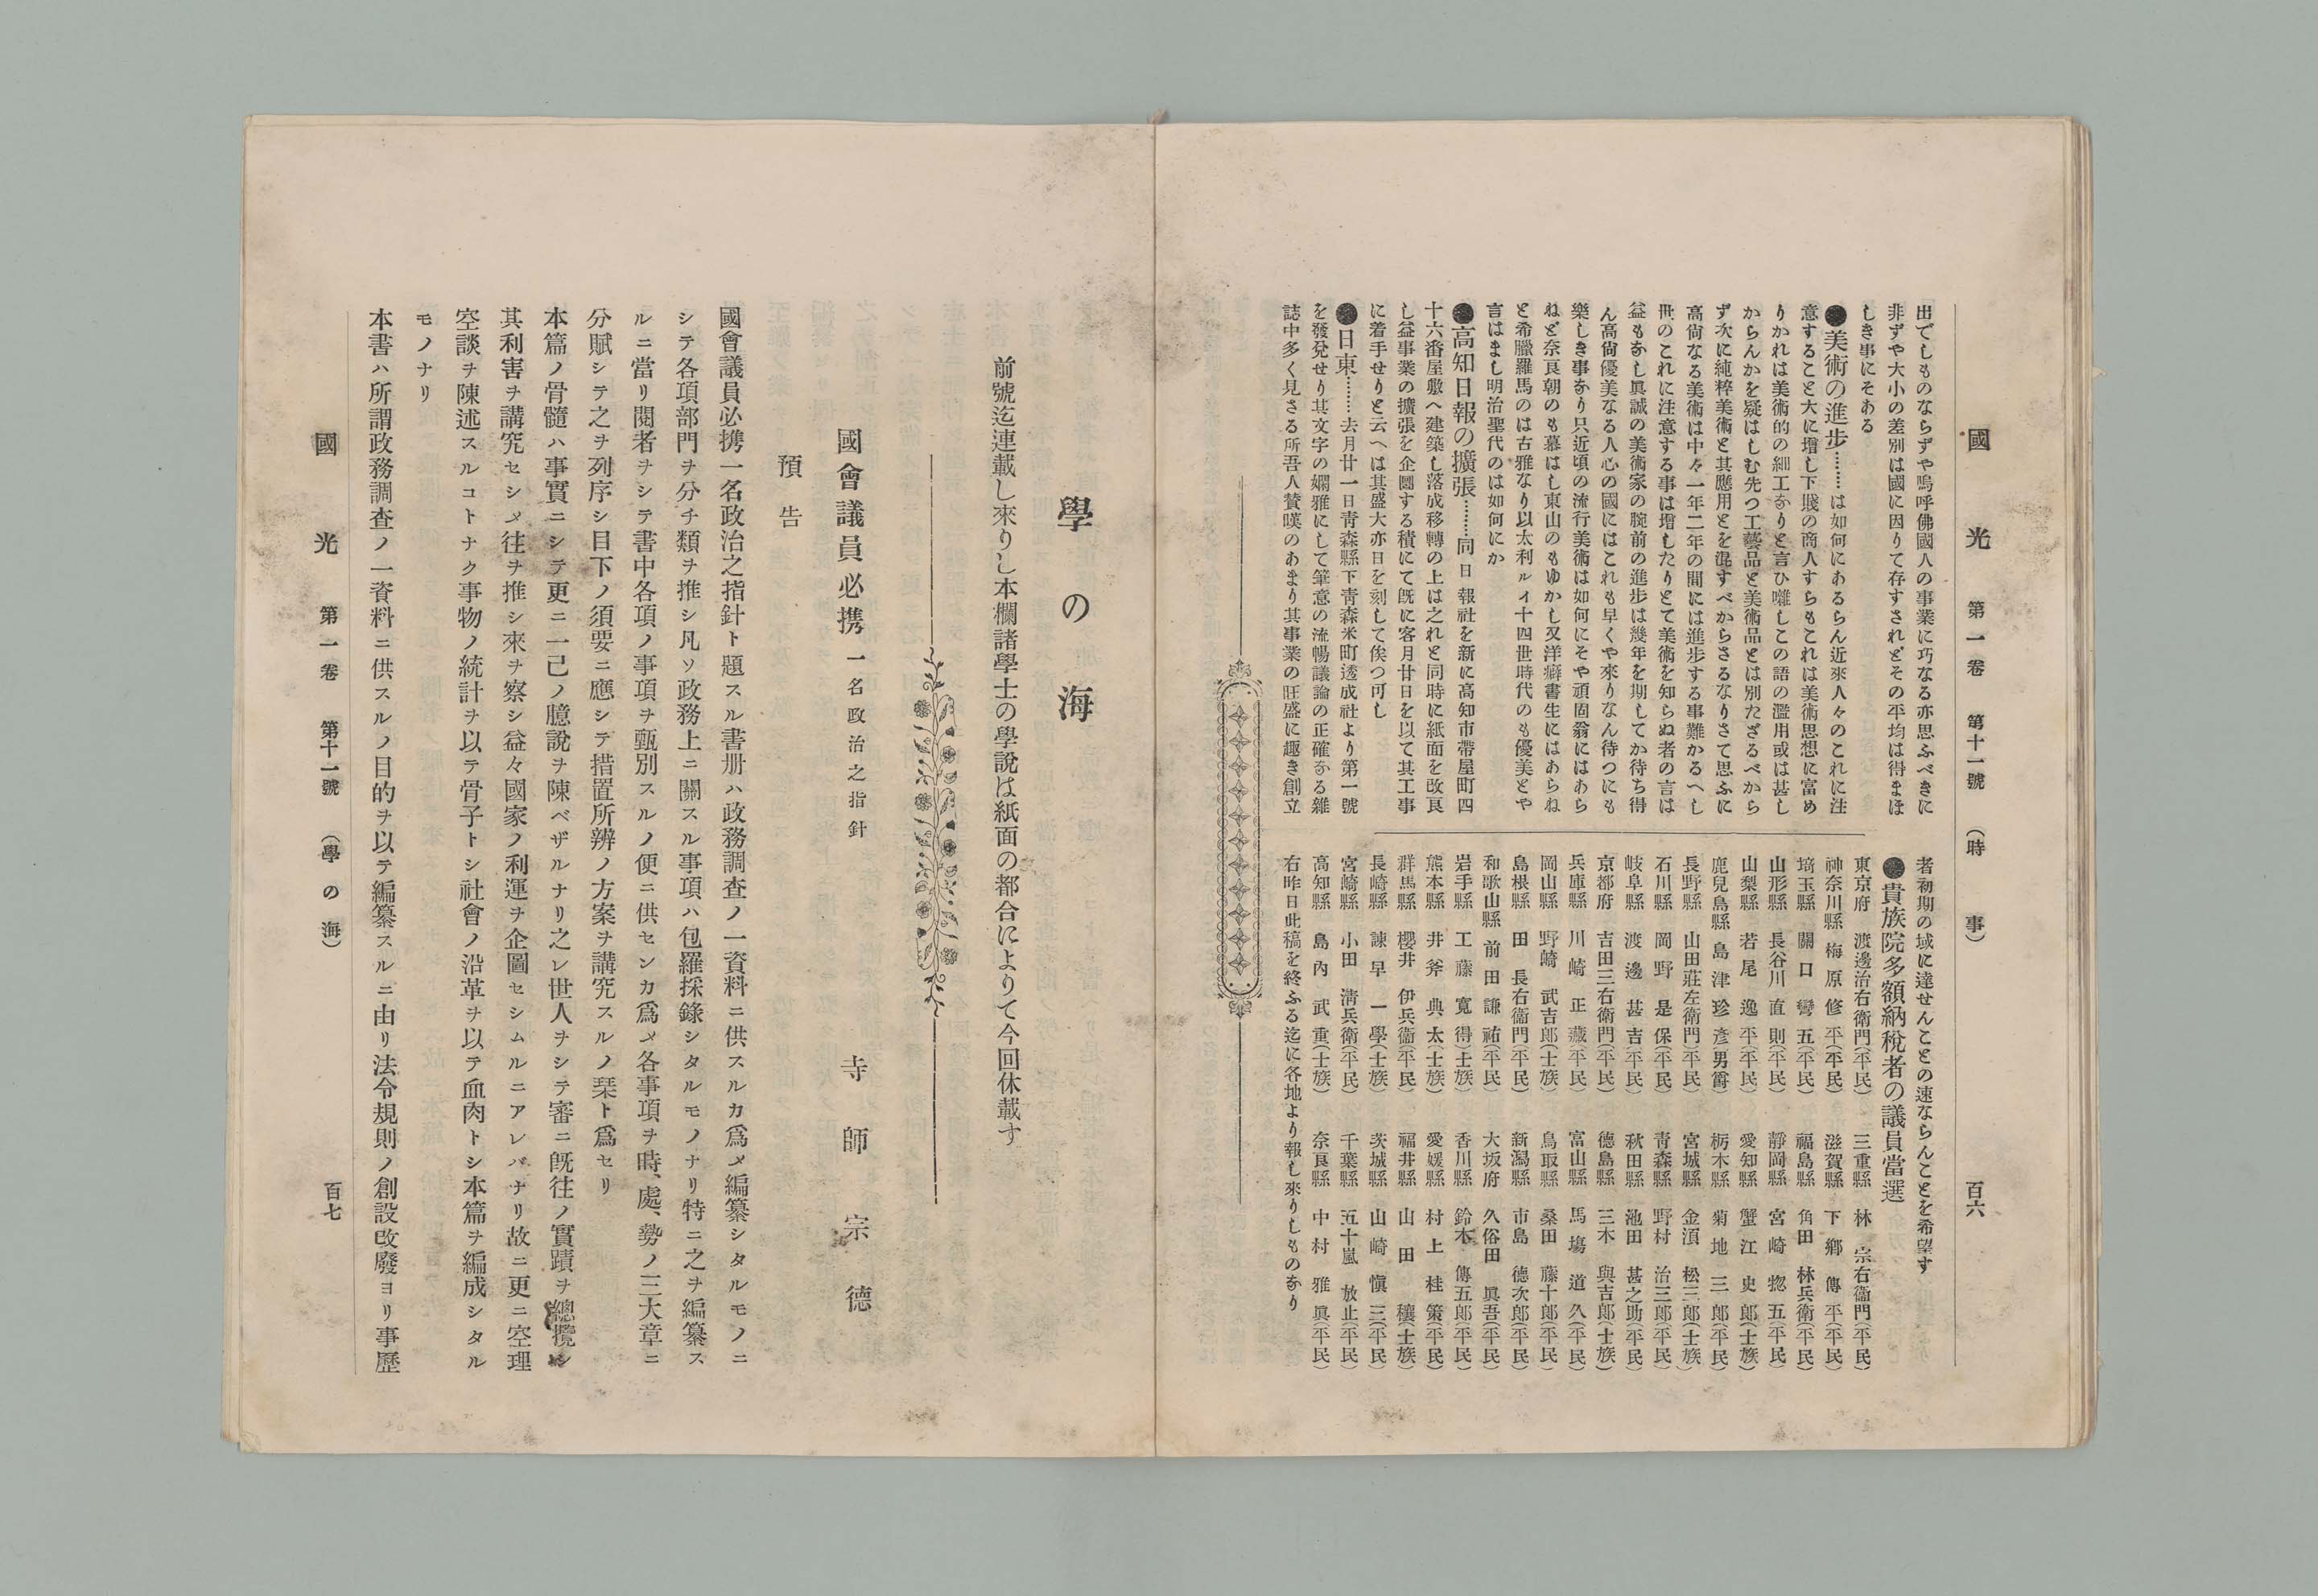 國光 第一卷 第十一號 (時事) 百六
出でしものならずや嗚呼佛國人の事業に巧なる亦思ふべきに
非ずや大小の差別は國に因りて存すされどその平均は得まほ
しき事にそある
●美術の進步……は如何にあるらん近來人々のこれに注
意すること大に增し下賤の商人すらもこれは美術思想に富め
りかれは美術的の細工なりと言ひ囃しこの語の濫用或は甚し
からんかを疑はしむ先つ工藝品と美術品とは別たざるべから
ず次に純粹美術と其應用とを混すべからさるなりさて思ふに
高尙なる美術は中々一年二年の間には進步する事難かるへし
世のこれに注意する事は增したりとて美術を知らぬ者の言は
益もなし眞誠の美術家の腕前の進步は幾年を期してか待ち得
ん高尙優美なる人心の國にはこれも早くや來りなん待つにも
樂しき事なり只近頃の流行美術は如何にそや頑固翁にはあら
ねど奈良朝のも慕はし東山のもゆかし又洋癖書生にはあらね
と希臘羅馬のは古雅なり以太利ルイ十四世時代のも優美とや
言はまし明治聖代のは如何にか
●高知日報の擴張……同日報社を新に高知市帶屋町四
十六番屋敷へ建築し落成移轉の上は之れと同時に紙面を改良
し益事業の擴張を企圖する積にて既に客月廿日を以て其工事
に着手せりと云へは其盛大亦日を刻して俟つ可し
●日東……去月廿一日靑森縣下靑森米町透成社より第一號
を發兌せり其文字の嫻雅にして筆意の流暢議論の正確なる雜
誌中多く見さる所吾人賛嘆のあまり其事業の旺盛に趣き創立
者初期の域に達せんことの速ならんことを希望す
●貴族院多額納稅者の議員當選
東京府 渡邊治右衛門(平民) 三重縣 林宗右衞門(平民)
神奈川縣 梅原修平(平民) 滋賀縣 下鄕傳平(平民)
埼玉縣 關口彎五(平民) 福島縣 角田林兵衛(平民)
山形縣 長谷川直則(平民) 靜岡縣 宮崎惣五(平民)
山梨縣 若尾逸平(平民) 愛知縣 蟹江史郎(士族)
鹿兒島縣 島津珍彥(男爵) 栃木縣 菊地三郎(平民)
長野縣 山田莊左衛門(平民) 宮城縣 金湏松三郎(士族)
石川縣 岡野是保(平民) 靑森縣 野村治三郎(平民)
岐阜縣 渡邊甚吉(平民) 秋田縣 池田甚之助(平民)
京都府 吉田三右衛門(平民) 德島縣 三木與吉郎(士族)
兵庫縣 川崎正藏(平民) 富山縣 馬塲道久(平民)
岡山縣 野崎武吉郎(士族) 鳥取縣 桑田藤十郎(平民)
島根縣 田長右衞門(平民) 新潟縣 市島德次郎(平民)
和歌山縣 前田謙祐(平民) 大坂府 久俗田眞吾(平民)
岩手縣 工藤寬得(士族) 香川縣 鈴木傳五郎(平民)
熊本縣 井斧典太(士族) 愛媛縣 村上桂策(平民)
群馬縣 櫻井伊兵衞(平民) 福井縣 山田穰(士族)
長崎縣 諫早一學(士族) 茨城縣 山崎愼三(平民)
宮崎縣 小田淸兵衛(平民) 千葉縣 五十嵐放止(平民)
高知縣 島內武重(士族) 奈良縣 中村雅眞(平民)
右昨日此稿を終ふる迄に各地より報し來りしものなり
學の海
前號迄連載し來りし本欄諸學士の學說は紙面の都合によりて今回休載す
國會議員必携 一名政治之指針
寺師宗德
預告
國會議員必携一名政治之指針ト題スル書册ハ政務調査ノ一資料ニ供スルカ爲メ編纂シタルモノニ
シテ各項部門ヲ分チ類ヲ推シ凡ソ政務上ニ關スル事項ハ包羅採錄シタルモノナリ特ニ之ヲ編纂ス
ルニ當リ閱者ヲシテ書中各項ノ事項ヲ甄別スルノ便ニ供センカ爲メ各事項ヲ時、處、勢ノ三大章ニ
分賦シテ之ヲ列序シ目下ノ須要ニ應シテ措置所辨ノ方案ヲ講究スルノ栞ト爲セリ
本篇ノ骨髓ハ事實ニシテ更ニ一己ノ臆說ヲ陳ベザルナリ之レ世人ヲシテ審ニ旣往ノ實蹟ヲ總攬シ
其利害ヲ講究セシメ往ヲ推シ來ヲ察シ益々國家ノ利運ヲ企圖セシムルニアレバナリ故ニ更ニ空理
空談ヲ陳述スルコトナク事物ノ統計ヲ以テ骨子トシ社會ノ沿革ヲ以テ血肉トシ本篇ヲ編成シタル
モノナリ
本書ハ所謂政務調査ノ一資料ニ供スルノ目的ヲ以テ編纂スルニ由リ法令規則ノ創設改廢ヨリ事歷
國光 第一卷 第十一號 (學の海) 百七